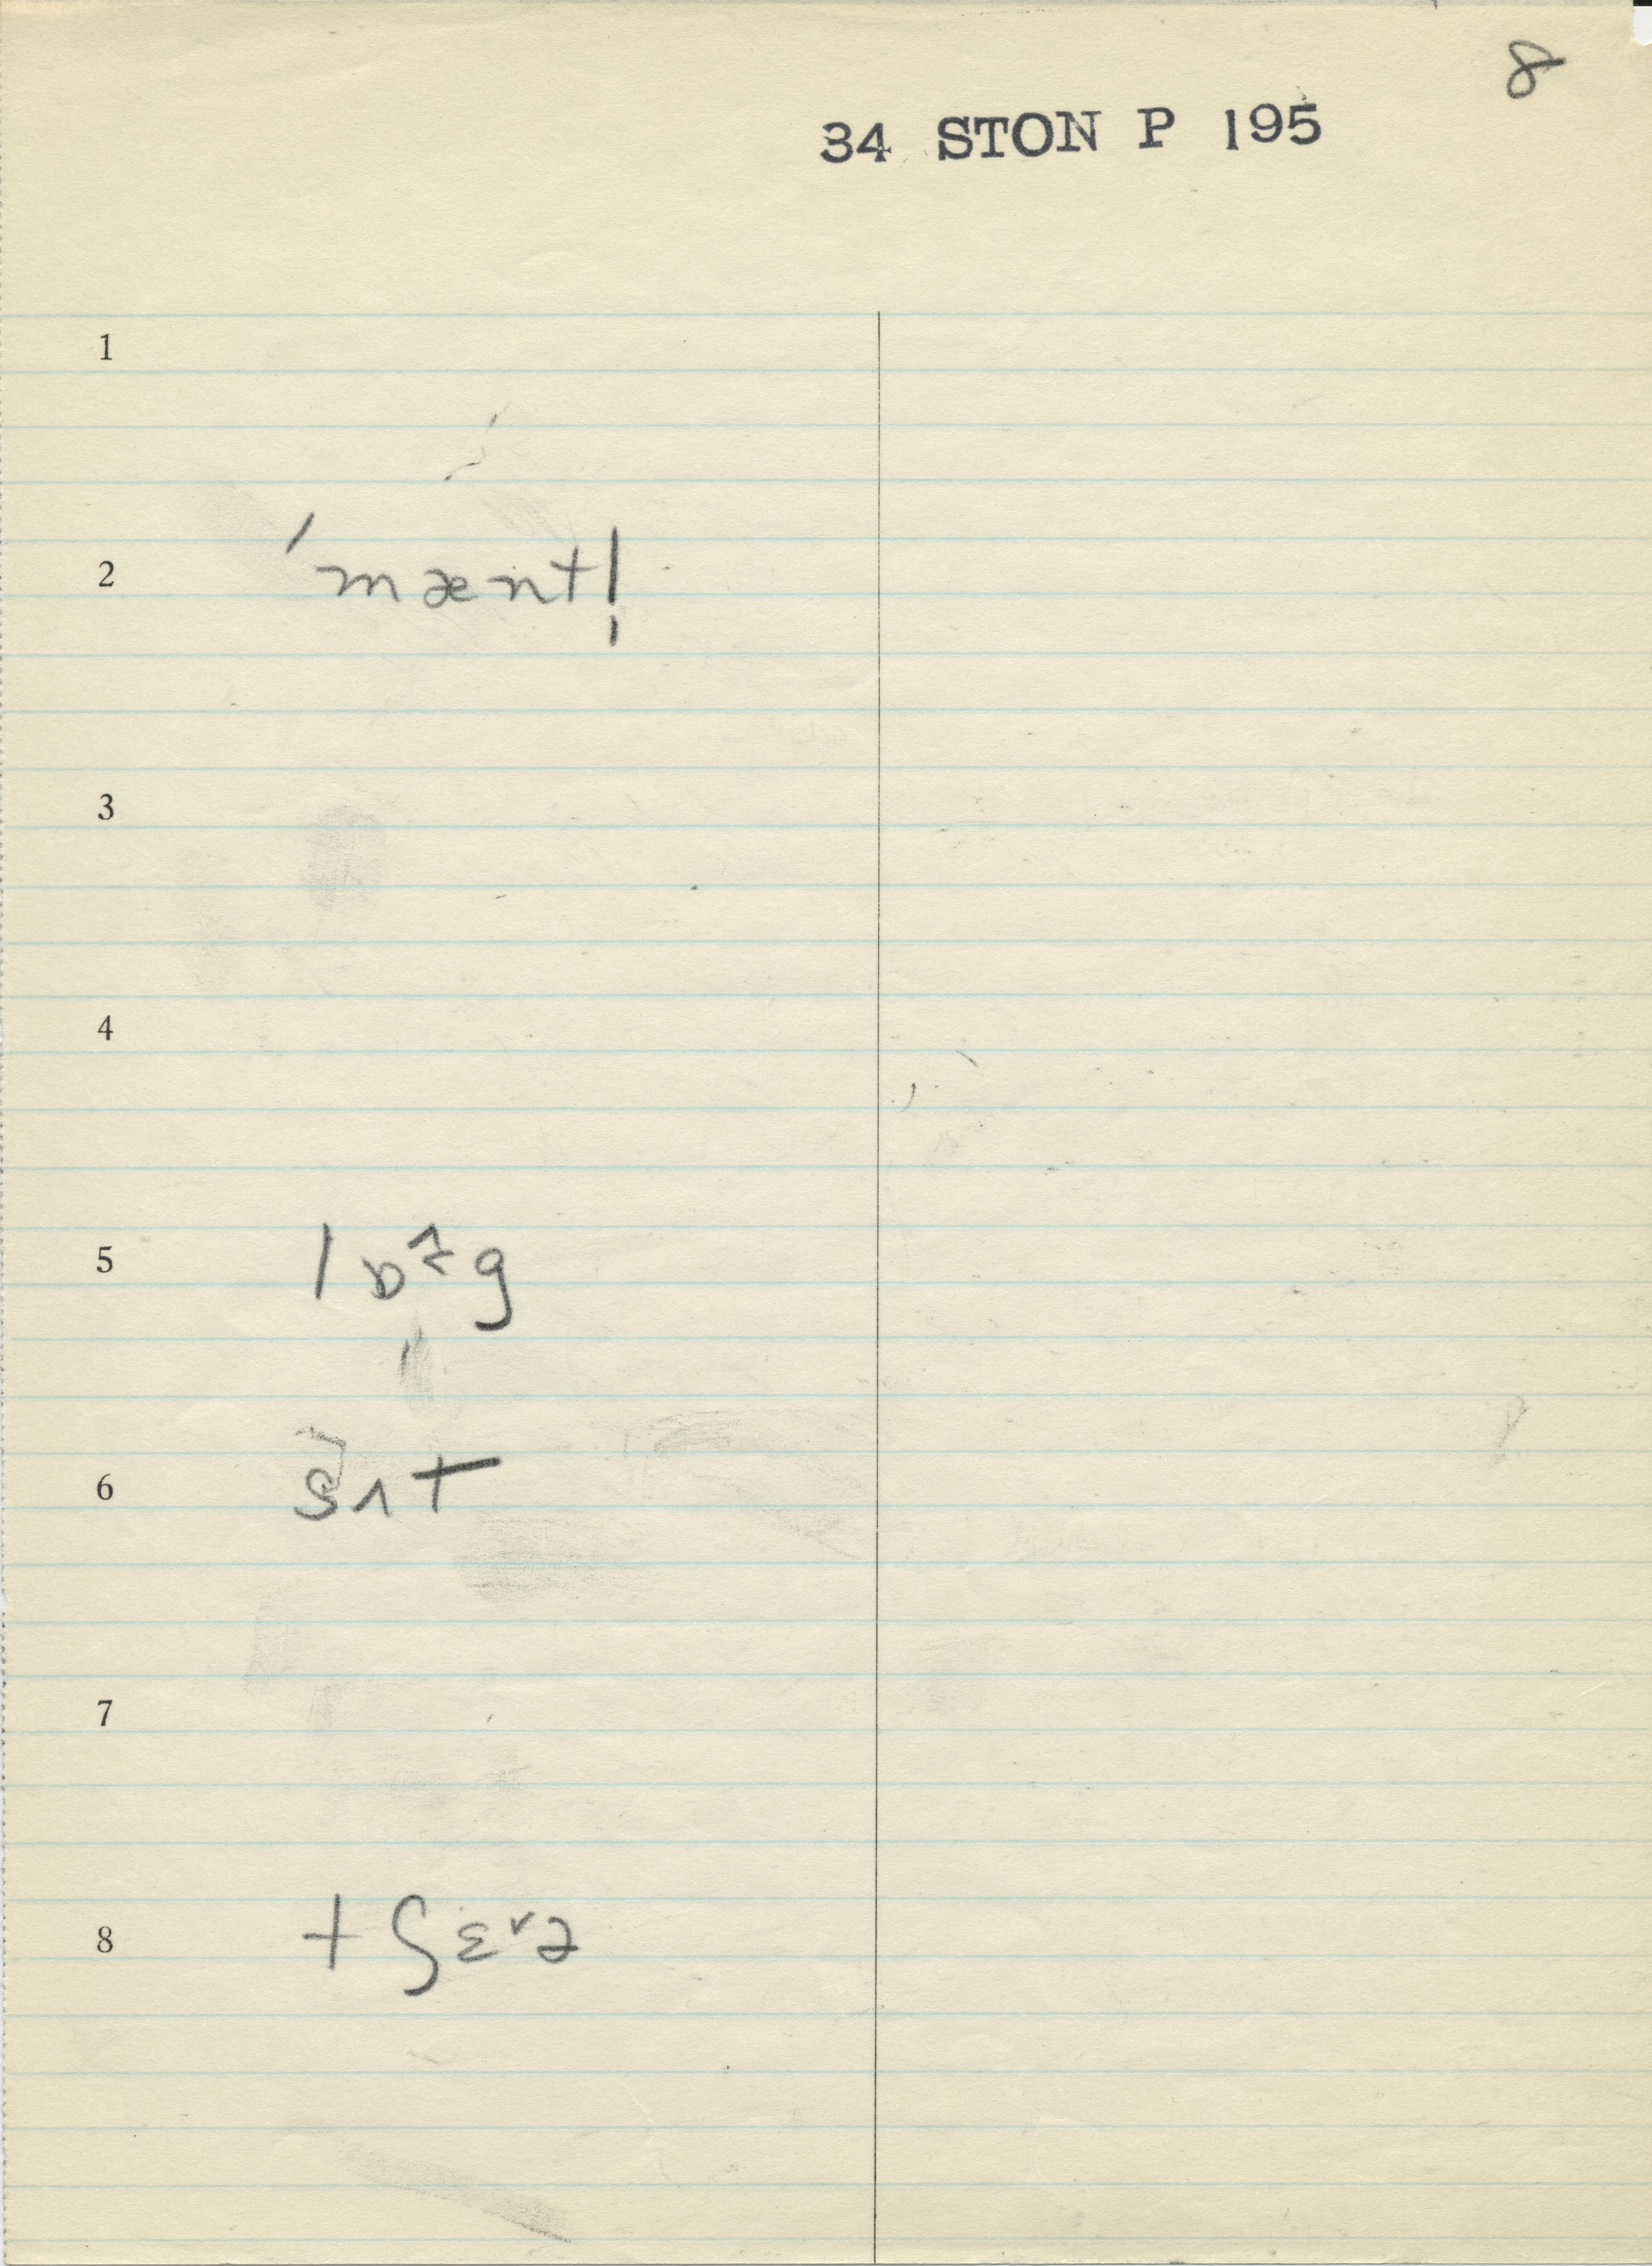 8
34 STON P 195
1
2 ˈmæntl̩
3
4
5 lɒᶧg
6 sʌt
7
8 tʃɛᵛə